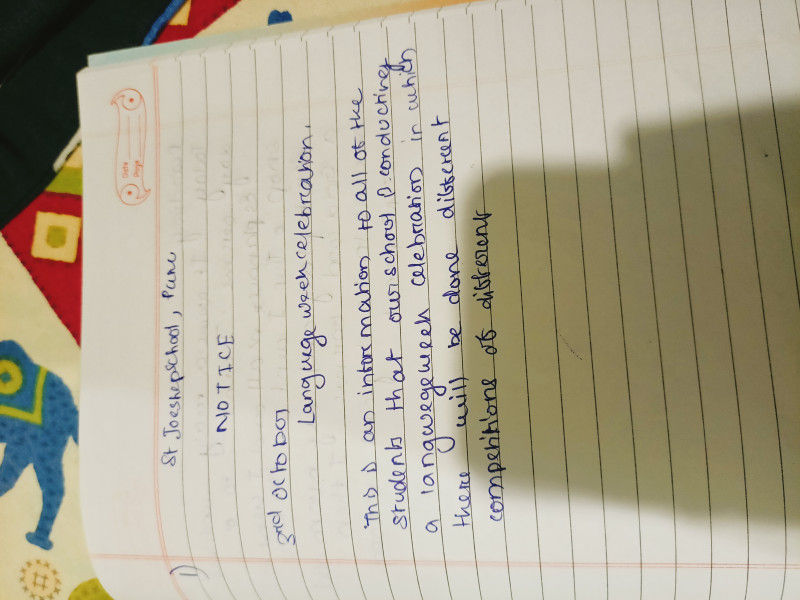 Date
Page
St Joeshep school, Pune
1)
NOTICE
3rd october
Languege week celebration.
This is an information to all of the
students that our school is conducting
a languege week celebration in which
there will be done different
competitions of different